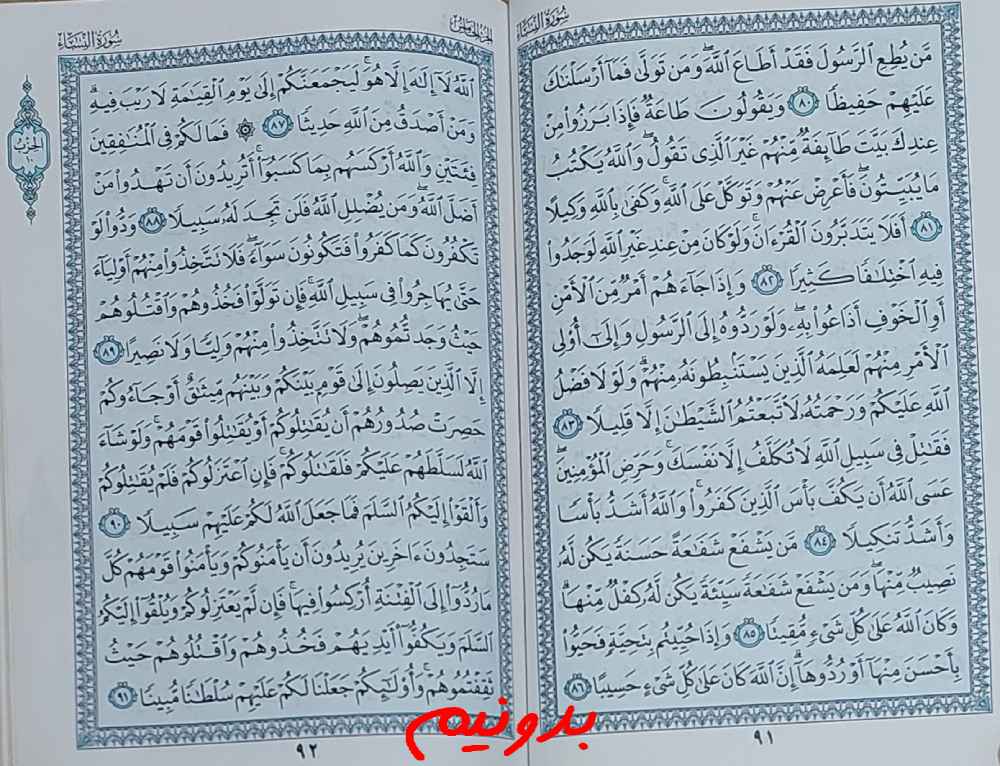 سُورَةُ النِّسَاءِ
مَّن يُطِعِ ٱلرَّسُولَ فَقَدْ أَطَاعَ ٱللَّهَ ۖ وَمَن تَوَلَّىٰ فَمَآ أَرْسَلْنَٰكَ
عَلَيْهِمْ حَفِيظًا ٨٠ وَيَقُولُونَ طَاعَةٌ فَإِذَا بَرَزُوا۟ مِنْ
عِندِكَ بَيَّتَ طَآئِفَةٌ مِّنْهُمْ غَيْرَ ٱلَّذِى تَقُولُ ۖ وَٱللَّهُ يَكْتُبُ
مَا يُبَيِّتُونَ ۖ فَأَعْرِضْ عَنْهُمْ وَتَوَكَّلْ عَلَى ٱللَّهِ ۚ وَكَفَىٰ بِٱللَّهِ وَكِيلًا
٨١ أَفَلَا يَتَدَبَّرُونَ ٱلْقُرْءَانَ ۚ وَلَوْ كَانَ مِنْ عِندِ غَيْرِ ٱللَّهِ لَوَجَدُوا۟
فِيهِ ٱخْتِلَٰفًا كَثِيرًا ٨٢ وَإِذَا جَآءَهُمْ أَمْرٌ مِّنَ ٱلْأَمْنِ
أَوِ ٱلْخَوْفِ أَذَاعُوا۟ بِهِۦ ۖ وَلَوْ رَدُّوهُ إِلَى ٱلرَّسُولِ وَإِلَىٰٓ أُو۟لِى
ٱلْأَمْرِ مِنْهُمْ لَعَلِمَهُ ٱلَّذِينَ يَسْتَنۢبِطُونَهُۥ مِنْهُمْ ۗ وَلَوْلَا فَضْلُ
ٱللَّهِ عَلَيْكُمْ وَرَحْمَتُهُۥ لَٱتَّبَعْتُمُ ٱلشَّيْطَٰنَ إِلَّا قَلِيلًا ٨٣
فَقَٰتِلْ فِى سَبِيلِ ٱللَّهِ لَا تُكَلَّفُ إِلَّا نَفْسَكَ ۚ وَحَرِّضِ ٱلْمُؤْمِنِينَ ۖ
عَسَى ٱللَّهُ أَن يَكُفَّ بَأْسَ ٱلَّذِينَ كَفَرُوا۟ ۚ وَٱللَّهُ أَشَدُّ بَأْسًا
وَأَشَدُّ تَنكِيلًا ٨٤ مَّن يَشْفَعْ شَفَٰعَةً حَسَنَةً يَكُن لَّهُۥ
نَصِيبٌ مِّنْهَا ۖ وَمَن يَشْفَعْ شَفَٰعَةً سَيِّئَةً يَكُن لَّهُۥ كِفْلٌ مِّنْهَا ۗ
وَكَانَ ٱللَّهُ عَلَىٰ كُلِّ شَىْءٍ مُّقِيتًا ٨٥ وَإِذَا حُيِّيتُم بِتَحِيَّةٍ فَحَيُّوا۟
بِأَحْسَنَ مِنْهَآ أَوْ رُدُّوهَآ ۗ إِنَّ ٱللَّهَ كَانَ عَلَىٰ كُلِّ شَىْءٍ حَسِيبًا ٨٦
٩١
الجزء الخامس
سُورَةُ النِّسَاءِ
ٱللَّهُ لَآ إِلَٰهَ إِلَّا هُوَ ۚ لَيَجْمَعَنَّكُمْ إِلَىٰ يَوْمِ ٱلْقِيَٰمَةِ لَا رَيْبَ فِيهِ ۗ
وَمَنْ أَصْدَقُ مِنَ ٱللَّهِ حَدِيثًا ٨٧ ۞ فَمَا لَكُمْ فِى ٱلْمُنَٰفِقِينَ
فِئَتَيْنِ وَٱللَّهُ أَرْكَسَهُم بِمَا كَسَبُوٓا۟ ۚ أَتُرِيدُونَ أَن تَهْدُوا۟ مَنْ
أَضَلَّ ٱللَّهُ ۖ وَمَن يُضْلِلِ ٱللَّهُ فَلَن تَجِدَ لَهُۥ سَبِيلًا ٨٨ وَدُّوا۟ لَوْ
تَكْفُرُونَ كَمَا كَفَرُوا۟ فَتَكُونُونَ سَوَآءً ۖ فَلَا تَتَّخِذُوا۟ مِنْهُمْ أَوْلِيَآءَ
حَتَّىٰ يُهَاجِرُوا۟ فِى سَبِيلِ ٱللَّهِ ۚ فَإِن تَوَلَّوْا۟ فَخُذُوهُمْ وَٱقْتُلُوهُمْ
حَيْثُ وَجَدتُّمُوهُمْ ۖ وَلَا تَتَّخِذُوا۟ مِنْهُمْ وَلِيًّا وَلَا نَصِيرًا ٨٩
إِلَّا ٱلَّذِينَ يَصِلُونَ إِلَىٰ قَوْمٍۭ بَيْنَكُمْ وَبَيْنَهُم مِّيثَٰقٌ أَوْ جَآءُوكُمْ
حَصِرَتْ صُدُورُهُمْ أَن يُقَٰتِلُوكُمْ أَوْ يُقَٰتِلُوا۟ قَوْمَهُمْ ۚ وَلَوْ شَآءَ
ٱللَّهُ لَسَلَّطَهُمْ عَلَيْكُمْ فَلَقَٰتَلُوكُمْ ۚ فَإِنِ ٱعْتَزَلُوكُمْ فَلَمْ يُقَٰتِلُوكُمْ
وَأَلْقَوْا۟ إِلَيْكُمُ ٱلسَّلَمَ فَمَا جَعَلَ ٱللَّهُ لَكُمْ عَلَيْهِمْ سَبِيلًا ٩٠
سَتَجِدُونَ ءَاخَرِينَ يُرِيدُونَ أَن يَأْمَنُوكُمْ وَيَأْمَنُوا۟ قَوْمَهُمْ كُلَّ
مَا رُدُّوٓا۟ إِلَى ٱلْفِتْنَةِ أُرْكِسُوا۟ فِيهَا ۚ فَإِن لَّمْ يَعْتَزِلُوكُمْ وَيُلْقُوٓا۟ إِلَيْكُمُ
ٱلسَّلَمَ وَيَكُفُّوٓا۟ أَيْدِيَهُمْ فَخُذُوهُمْ وَٱقْتُلُوهُمْ حَيْثُ
ثَقِفْتُمُوهُمْ ۚ وَأُو۟لَٰٓئِكُمْ جَعَلْنَا لَكُمْ عَلَيْهِمْ سُلْطَٰنًا مُّبِينًا ٩١
الحزب
١٠
٩٢
بدونیم